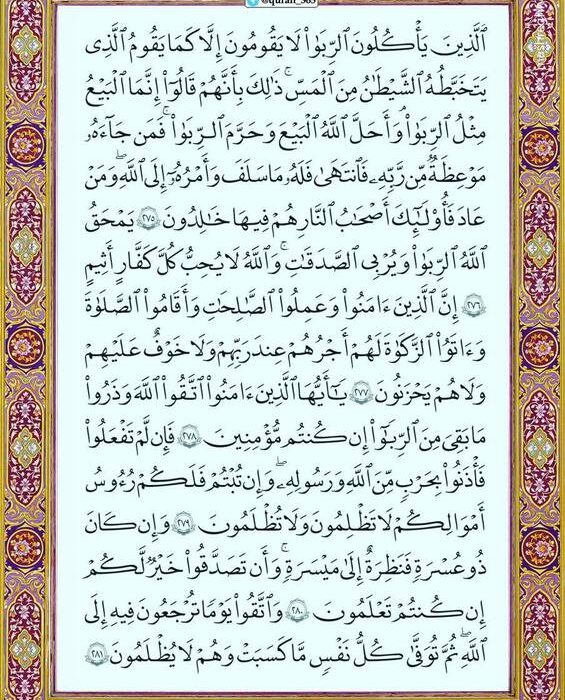 @quran_365
ٱلَّذِينَ يَأۡكُلُونَ ٱلرِّبَوٰاْ لَا يَقُومُونَ إِلَّا كَمَا يَقُومُ ٱلَّذِي
يَتَخَبَّطُهُ ٱلشَّيۡطَٰنُ مِنَ ٱلۡمَسِّۚ ذَٰلِكَ بِأَنَّهُمۡ قَالُوٓاْ إِنَّمَا ٱلۡبَيۡعُ
مِثۡلُ ٱلرِّبَوٰاْۗ وَأَحَلَّ ٱللَّهُ ٱلۡبَيۡعَ وَحَرَّمَ ٱلرِّبَوٰاْۚ فَمَن جَآءَهُۥ
مَوۡعِظَةٞ مِّن رَّبِّهِۦ فَٱنتَهَىٰ فَلَهُۥ مَا سَلَفَ وَأَمۡرُهُۥٓ إِلَى ٱللَّهِۖ وَمَنۡ
عَادَ فَأُوْلَٰٓئِكَ أَصۡحَٰبُ ٱلنَّارِۖ هُمۡ فِيهَا خَٰلِدُونَ ٢٧٥ يَمۡحَقُ
ٱللَّهُ ٱلرِّبَوٰاْ وَيُرۡبِي ٱلصَّدَقَٰتِۗ وَٱللَّهُ لَا يُحِبُّ كُلَّ كَفَّارٍ أَثِيمٍ
٢٧٦ إِنَّ ٱلَّذِينَ ءَامَنُواْ وَعَمِلُواْ ٱلصَّٰلِحَٰتِ وَأَقَامُواْ ٱلصَّلَوٰةَ
وَءَاتَوُاْ ٱلزَّكَوٰةَ لَهُمۡ أَجۡرُهُمۡ عِندَ رَبِّهِمۡ وَلَا خَوۡفٌ عَلَيۡهِمۡ
وَلَا هُمۡ يَحۡزَنُونَ ٢٧٧ يَٰٓأَيُّهَا ٱلَّذِينَ ءَامَنُواْ ٱتَّقُواْ ٱللَّهَ وَذَرُواْ
مَا بَقِيَ مِنَ ٱلرِّبَوٰٓاْ إِن كُنتُم مُّؤۡمِنِينَ ٢٧٨ فَإِن لَّمۡ تَفۡعَلُواْ
فَأۡذَنُواْ بِحَرۡبٖ مِّنَ ٱللَّهِ وَرَسُولِهِۦۖ وَإِن تُبۡتُمۡ فَلَكُمۡ رُءُوسُ
أَمۡوَٰلِكُمۡ لَا تَظۡلِمُونَ وَلَا تُظۡلَمُونَ ٢٧٩ وَإِن كَانَ
ذُو عُسۡرَةٖ فَنَظِرَةٌ إِلَىٰ مَيۡسَرَةٖۚ وَأَن تَصَدَّقُواْ خَيۡرٞ لَّكُمۡ
إِن كُنتُمۡ تَعۡلَمُونَ ٢٨٠ وَٱتَّقُواْ يَوۡمٗا تُرۡجَعُونَ فِيهِ إِلَى
ٱللَّهِۖ ثُمَّ تُوَفَّىٰ كُلُّ نَفۡسٖ مَّا كَسَبَتۡ وَهُمۡ لَا يُظۡلَمُونَ ٢٨١